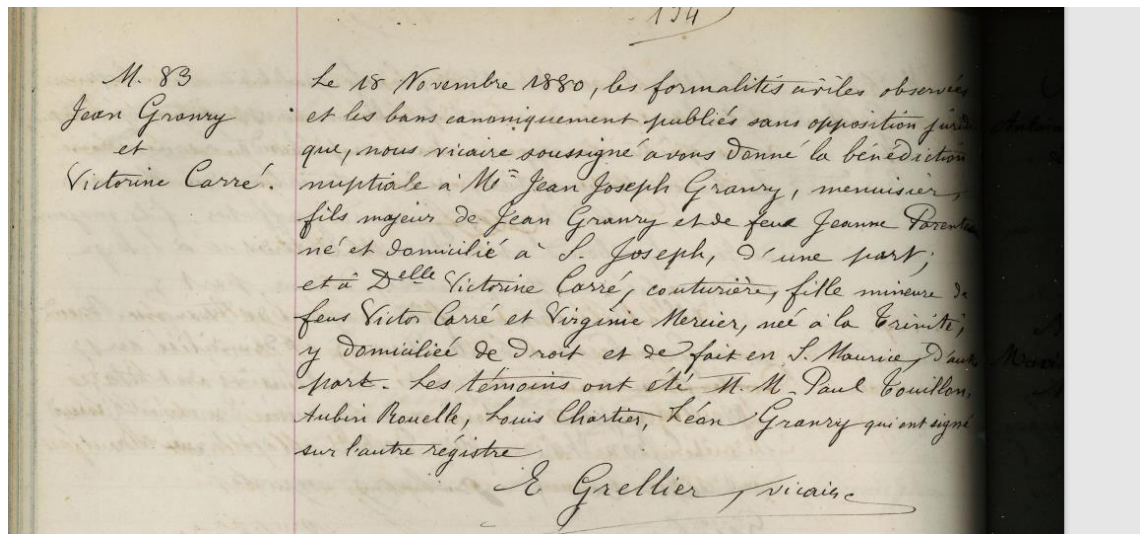 134
M. 83
Jean Granry
et
Victorine Carré.
Le 18 Novembre 1880, les formalités civiles observées
et les bans canoniquement publiés sans opposition juridi
que, nous vicaire soussigné avons donné la bénédiction
nuptiale à Mr Jean Joseph Granry, menuisier,
fils majeur de Jean Granry et de feue Jeanne
né et domicilié à S. Joseph, d'une part;
et à Delle Victorine Carré, couturière, fille mineure de
feus Victor Carré et Virginie Mercier, née à la Trinité,
y domiciliée de droit et de fait en S. Maurice, d'autre
part. Les témoins ont été M. M. Paul Touillon,
Aubin Rouelle, Louis Chartier, Léon Granry qui ont signé
sur l'autre régistre
E Grellier, vicaire